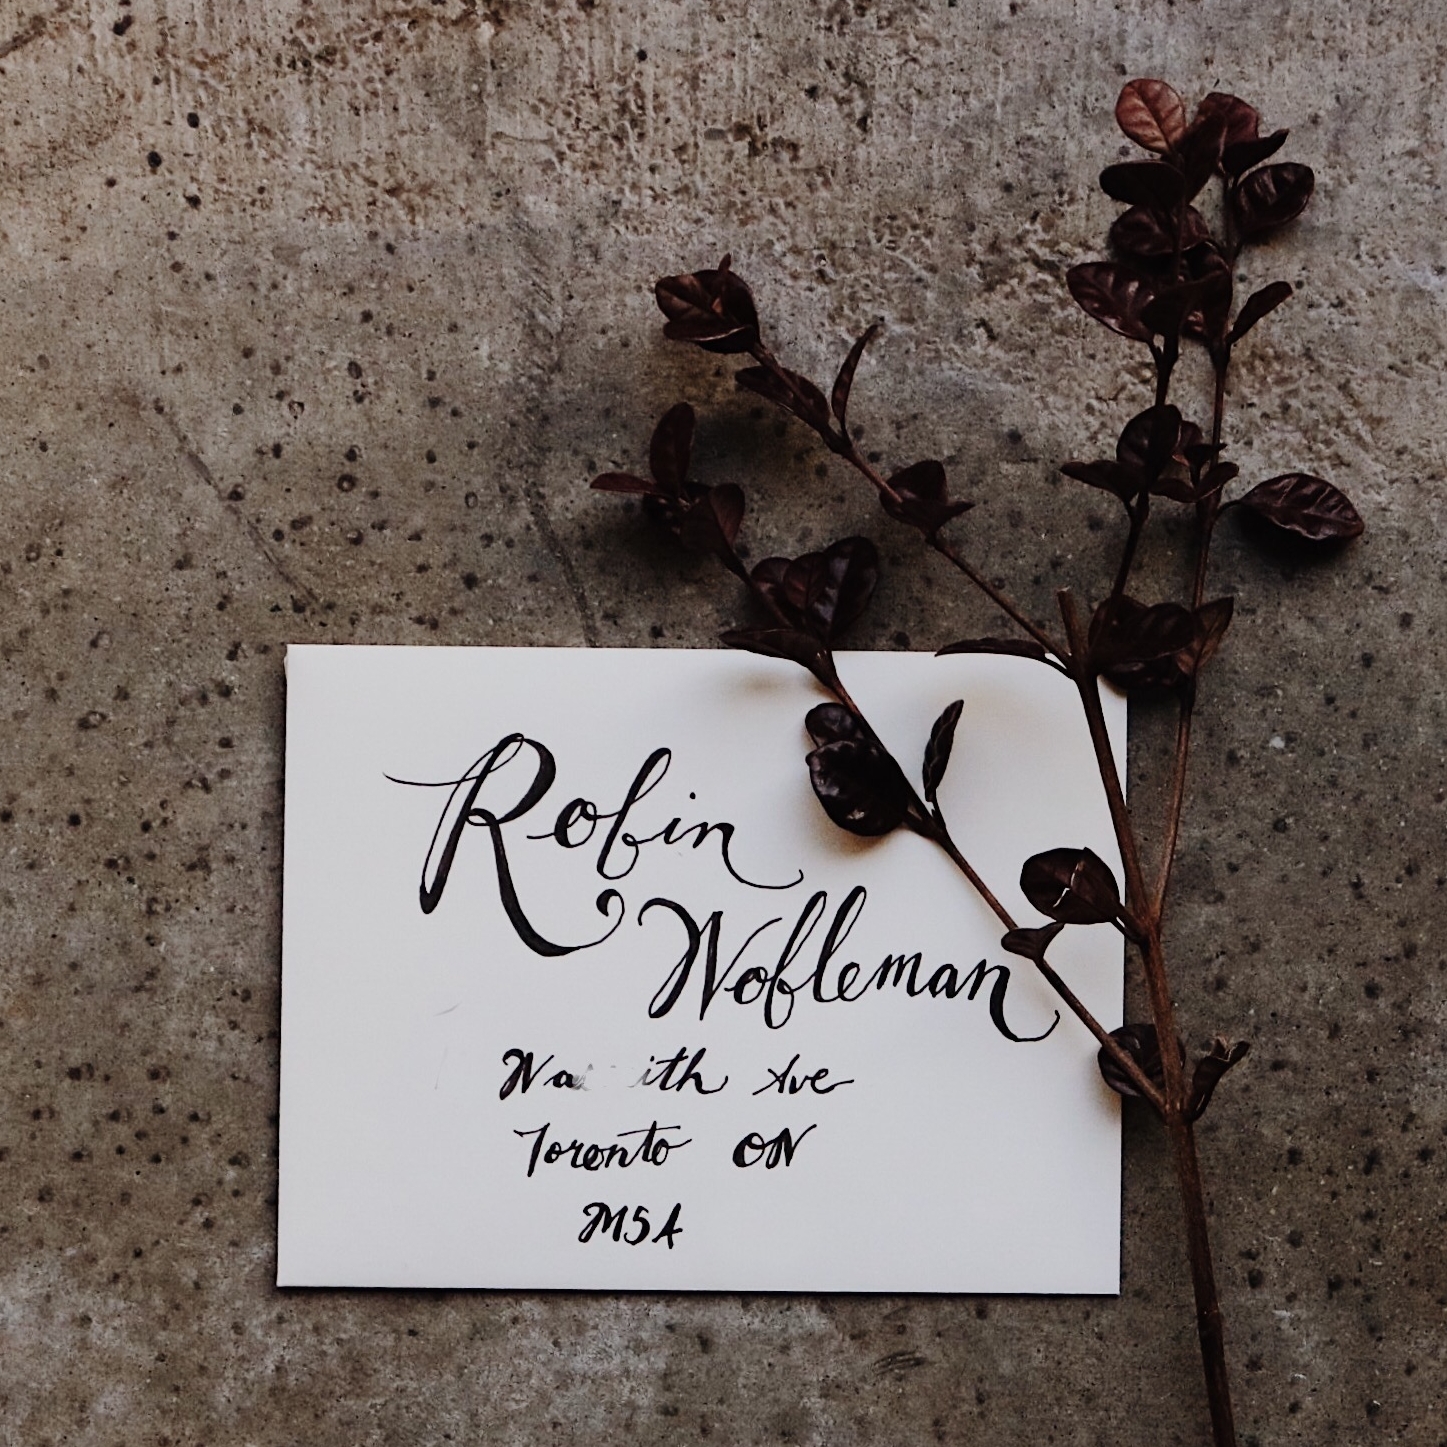 Robin
Wobleman
Ave
Toronto ON
M5A